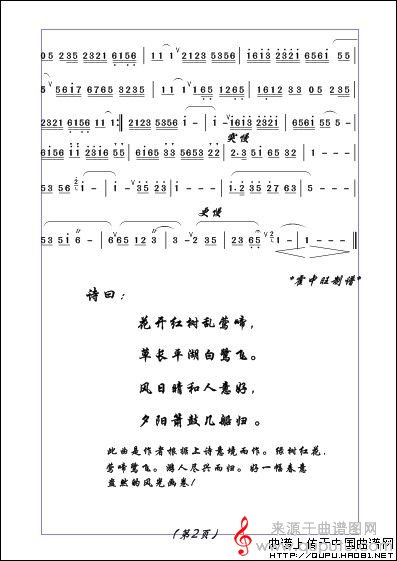 05 235 2321 6156 | 11 1 ∨ 2123 5356 | i6i3 2321 656i 55
5 56i7 6765 3235 | 11 1 ∨ 165 1265 | 1612 33 05 235
2321 6156 11 1 :‖ 2123 5356 i - | i - ∨ i6i3 2321 | 656i 55 5 - |
突慢
656i ii 2316 55 | 6i65 33 5653 22 | 2·3 5i 65 32 | 1 - - - |
53 56 i - | i - 35 23 | i - - - | i·2 35 27 63 | 5 - - - |
更慢
53 5i 6 - | 665 12 3 | 3 - 2 35 | 23 65 1 - | 1 - - - ‖
"霍中旺制谱"
诗曰：
花开红树乱莺啼，
草长平湖白鹭飞。
风日晴和人意好，
夕阳箫鼓几船归。
此曲是作者根据上诗意境而作。绿树红花，
莺啼鹭飞。游人尽兴而归。好一幅春意
盎然的风光画卷！
(第2页)
来源于曲谱图网
曲谱上传于中国曲谱网
HTTP://QUPU.HAO81.NET